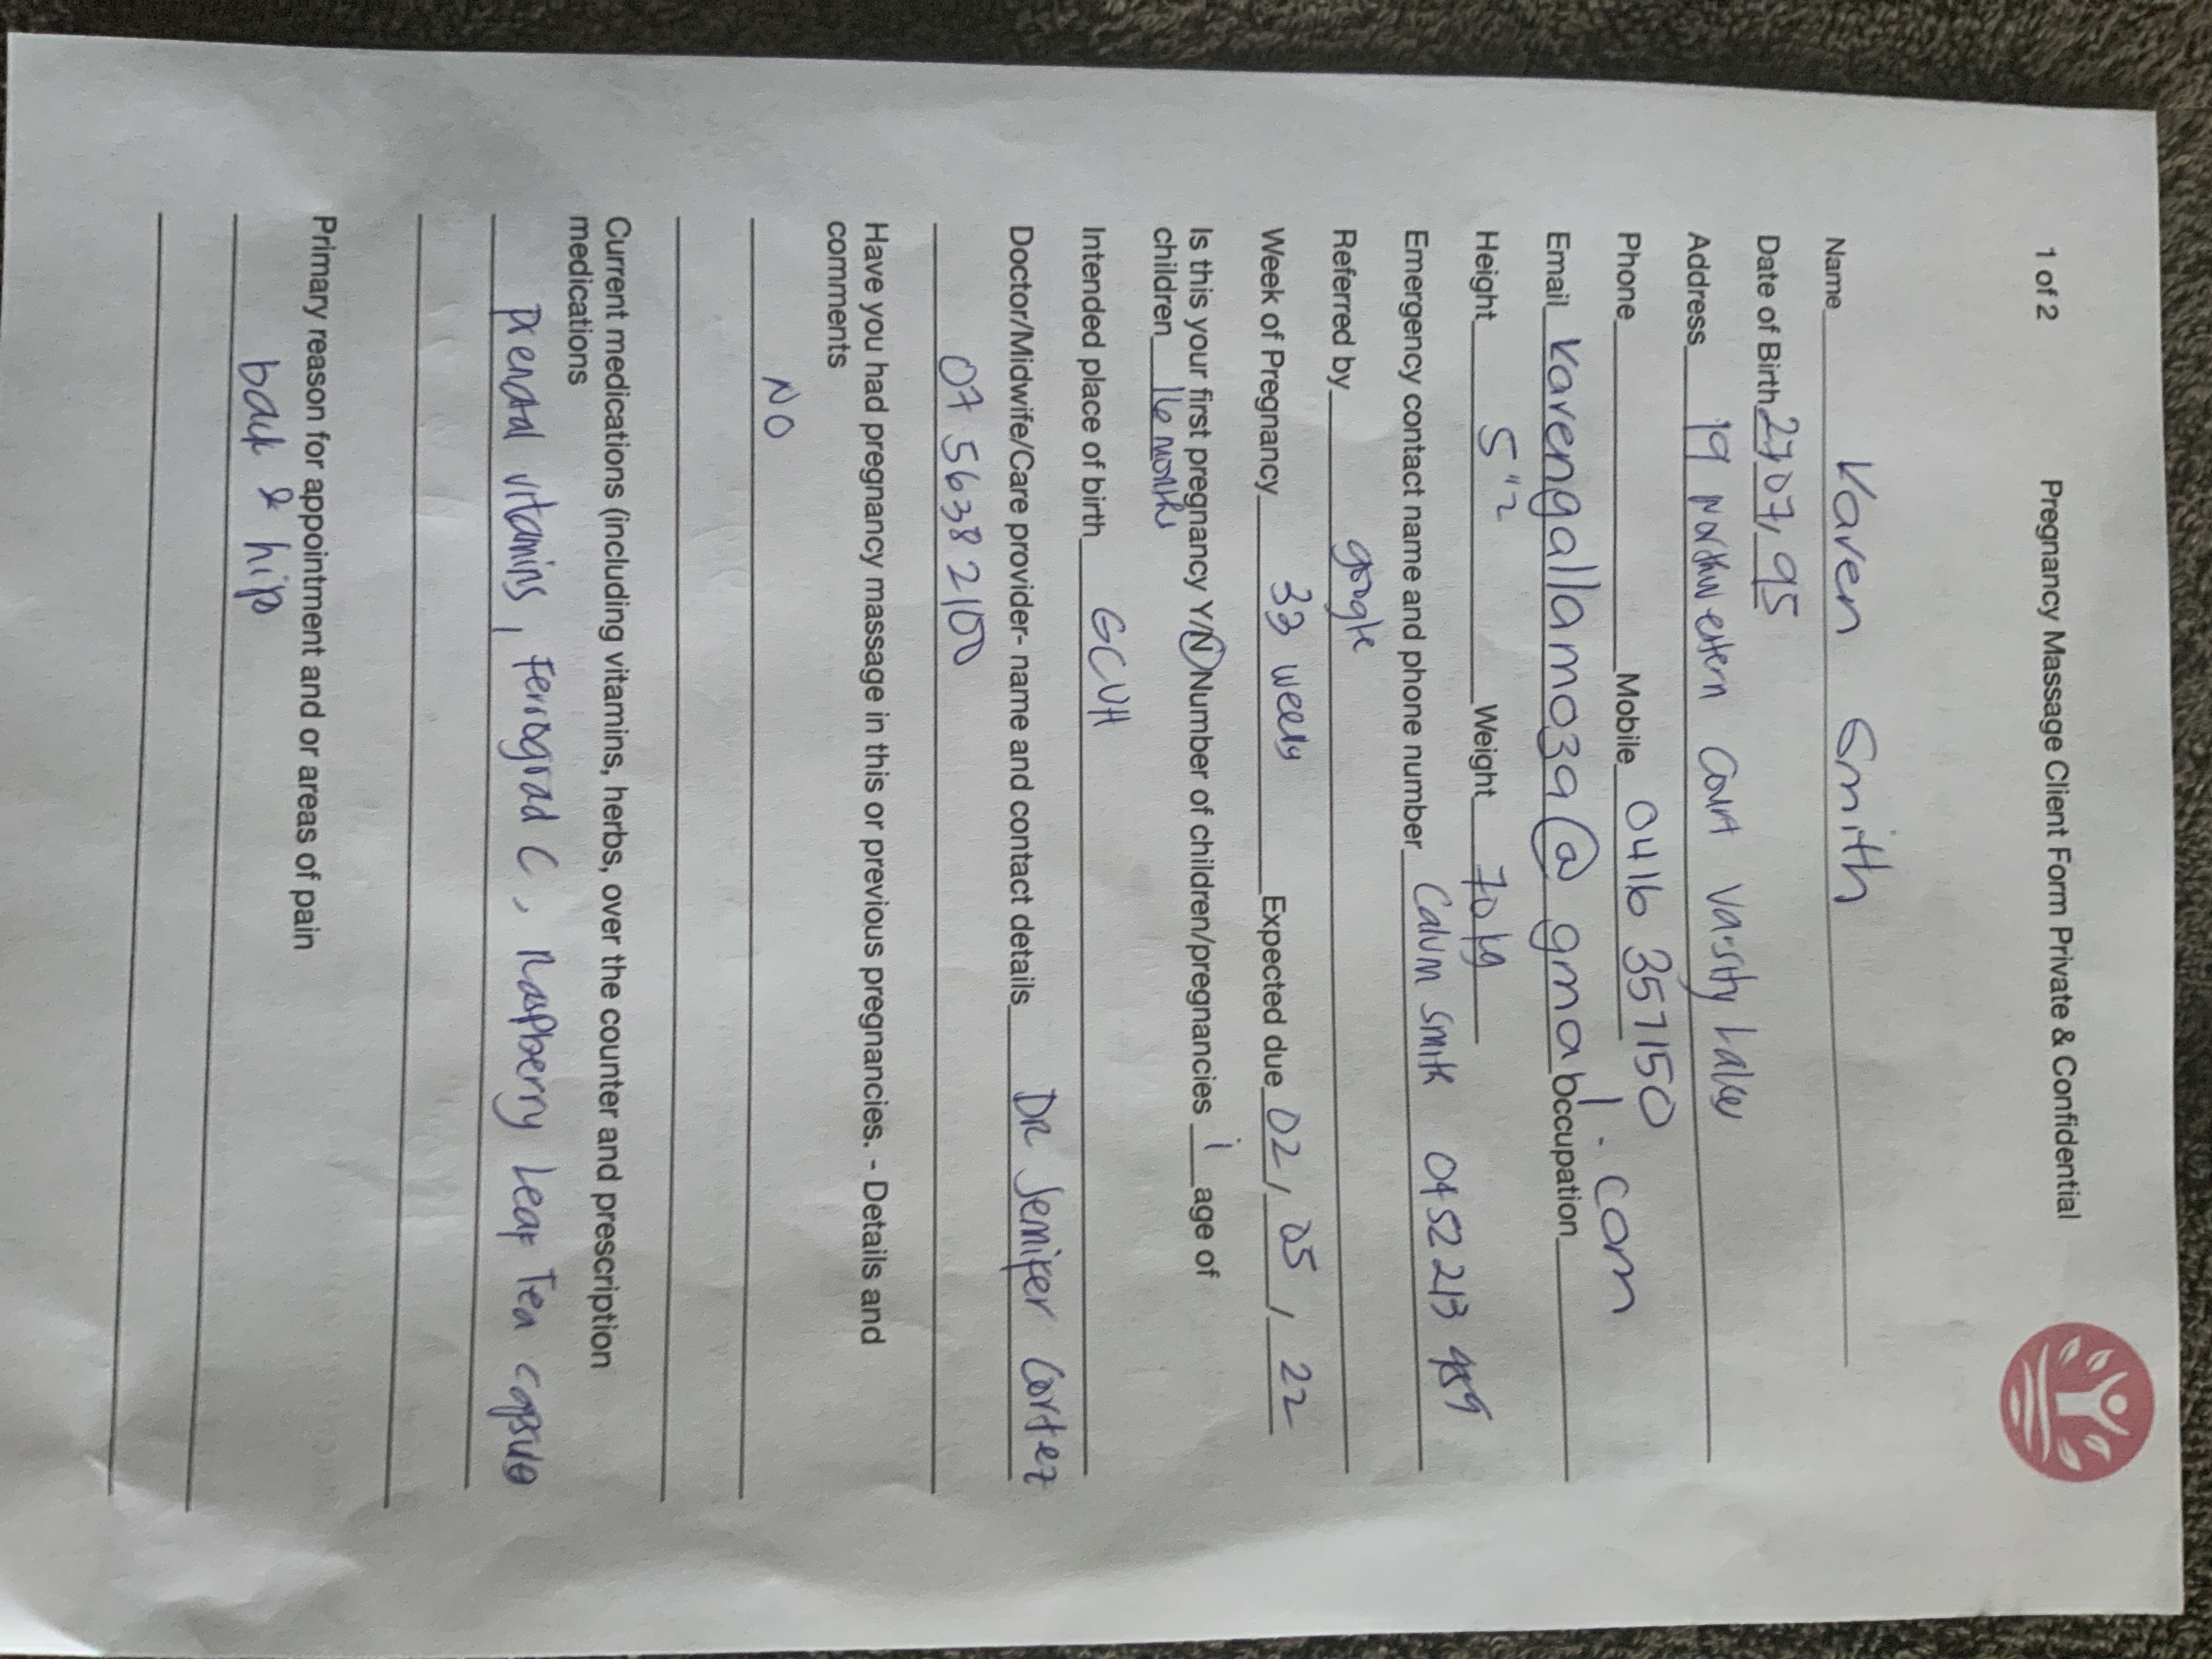 1 of 2 Pregnancy Massage Client Form Private & Confidential
Name Karen Smith
Date of Birth 27/07/95
Address 19 Northwestern Court Varsity Lakes
Phone Mobile 0416 357150
Email karengallamo39@gmail.com Occupation
Height 5"2 Weight 70kg
Emergency contact name and phone number Calum Smith 0452 213
Referred by google
Week of Pregnancy 33 weeks Expected due 02/05/22
Is this your first pregnancy Y/N Number of children/pregnancies 1 age of
children 16 months
Intended place of birth GCUH
Doctor/Midwife/Care provider- name and contact details DR Jenifer Cortez
07 5638 2100
Have you had pregnancy massage in this or previous pregnancies. - Details and
comments
NO
Current medications (including vitamins, herbs, over the counter and prescription
medications
prenatal vitamins, Ferrograd C, Raspberry Leaf Tea capsule
Primary reason for appointment and or areas of pain
back & hip